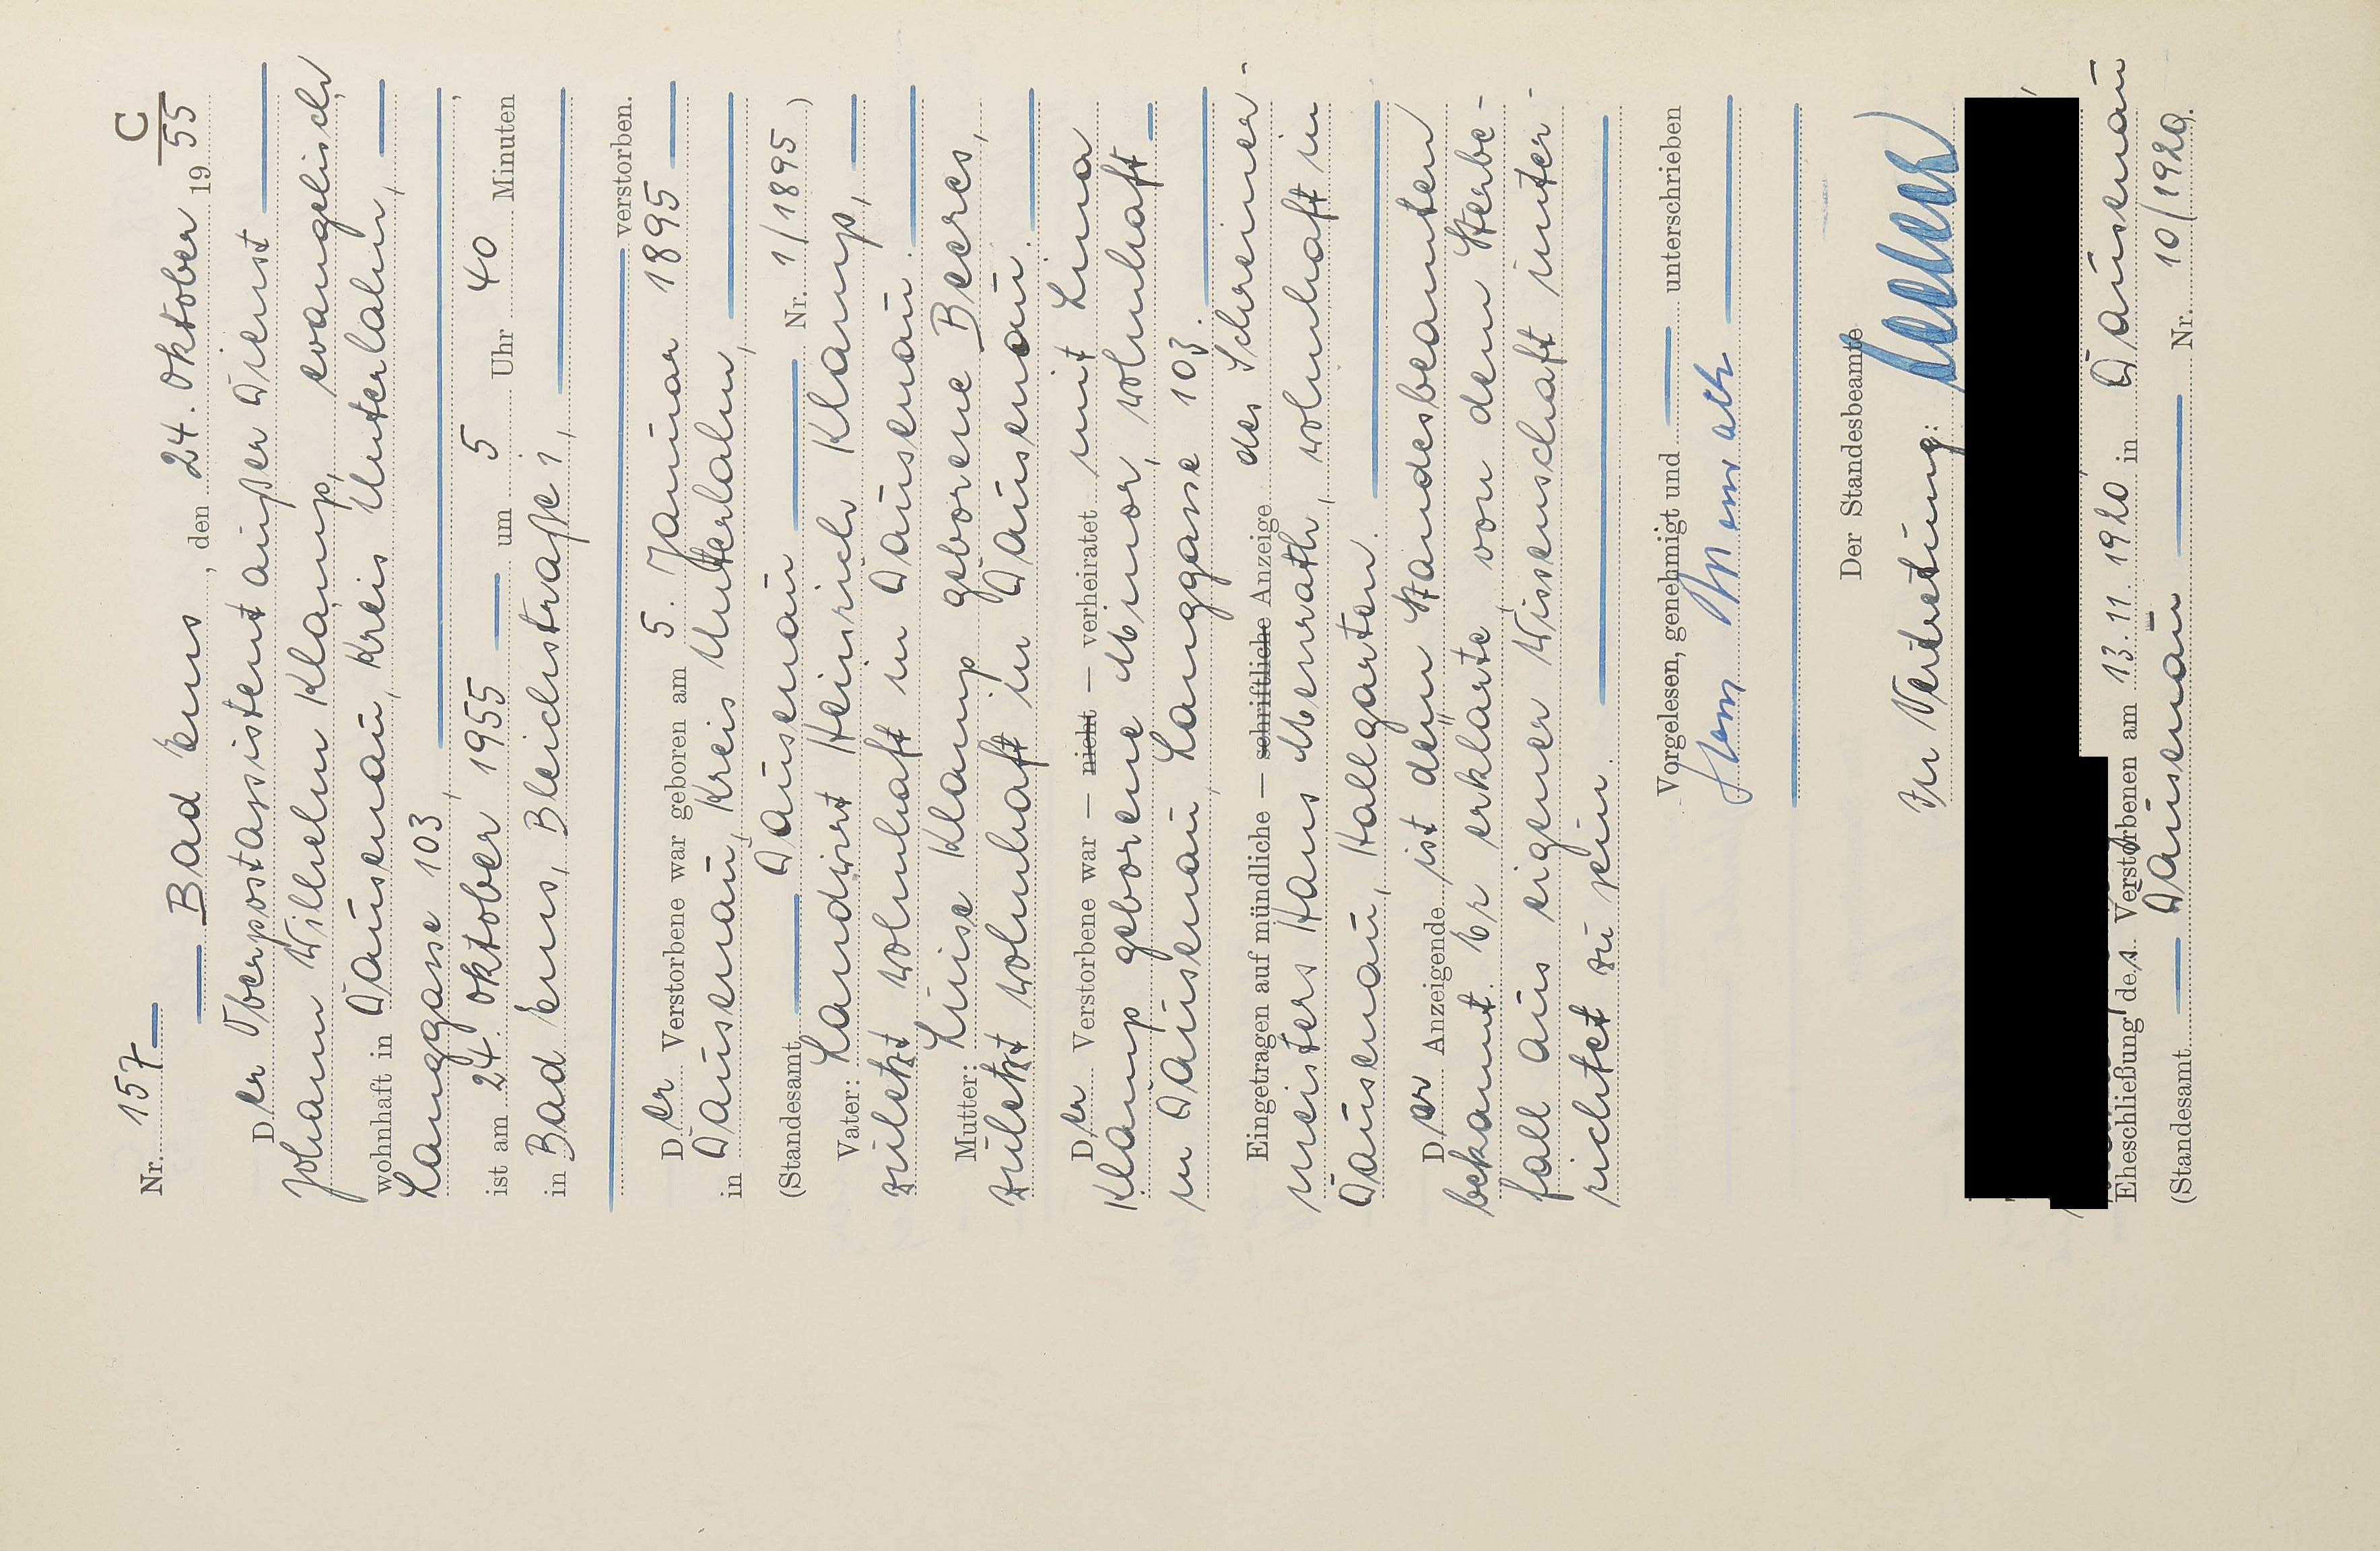 C
Nr. 157
Bad Ems, den 24. Oktober 1955
Der Oberpostassistent außer Dienst
Johann Wilhelm Klamp, evangelisch
wohnhaft in Dausenau, Kreis Unterlahn,
Langgasse 103,
ist am 24. Oktober 1955 um 5 Uhr 40 Minuten
in Bad Ems, Bleichstraße 1,
verstorben.
Der Verstorbene war geboren am 5. Januar 1895
in Dausenau, Kreis Unterlahn,
(Standesamt Dausenau Nr. 1/1895)
Vater: Landwirt Heinrich Klamp,
zuletzt wohnhaft in Dausenau.
Mutter: Luise Klamp geborene Beeres,
zuletzt wohnhaft in Dausenau.
Der Verstorbene war — nicht — verheiratet mit Lina
Klamp geborene Minor, wohnhaft
in Dausenau, Langgasse 103.
Eingetragen auf mündliche — schriftliche Anzeige des Schreiner-
meisters Hans Menrath, wohnhaft in
Dausenau, Hallgarten.
Der Anzeigende ist dem Standesbeamten
bekannt. Er erklärte, von dem Sterbe-
fall aus eigener Wissenschaft unter-
richtet zu sein.
Vorgelesen, genehmigt und unterschrieben
Menrath
Der Standesbeamte
In Vertretung:
Eheschließung des Verstorbenen am 13.11.1920 in Dausenau
(Standesamt Dausenau Nr. 10/1920.